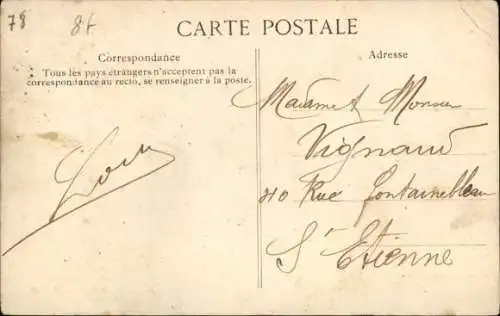 78 8t
CARTE POSTALE
Correspondance
Tous les pays étrangers n'acceptent pas la
correspondance au recto, se renseigner à la poste.
Adresse
Madame & Monsieur
Vignaud
210 Rue Fontainebleau
St Etienne